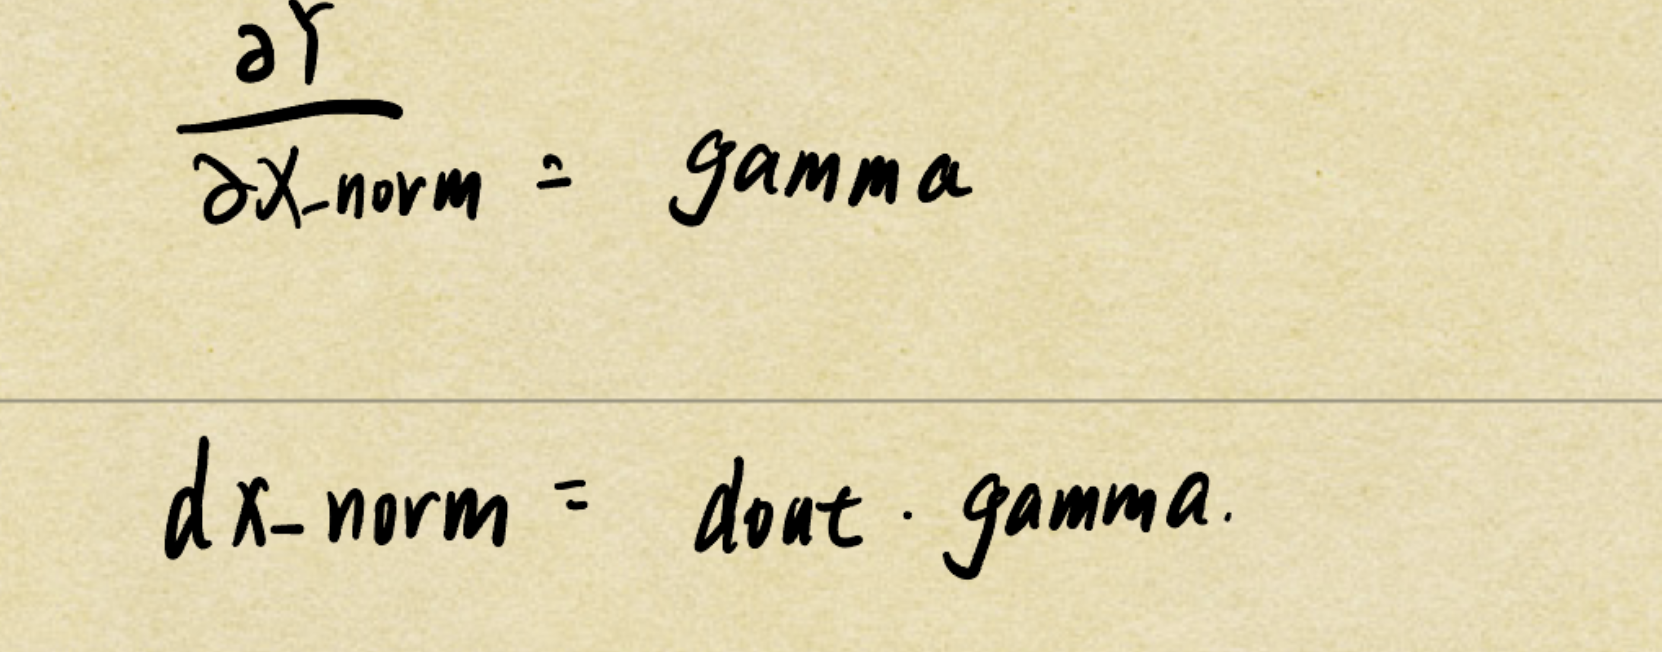 ∂Y
∂X_norm = gamma
dx_norm = dout · gamma.